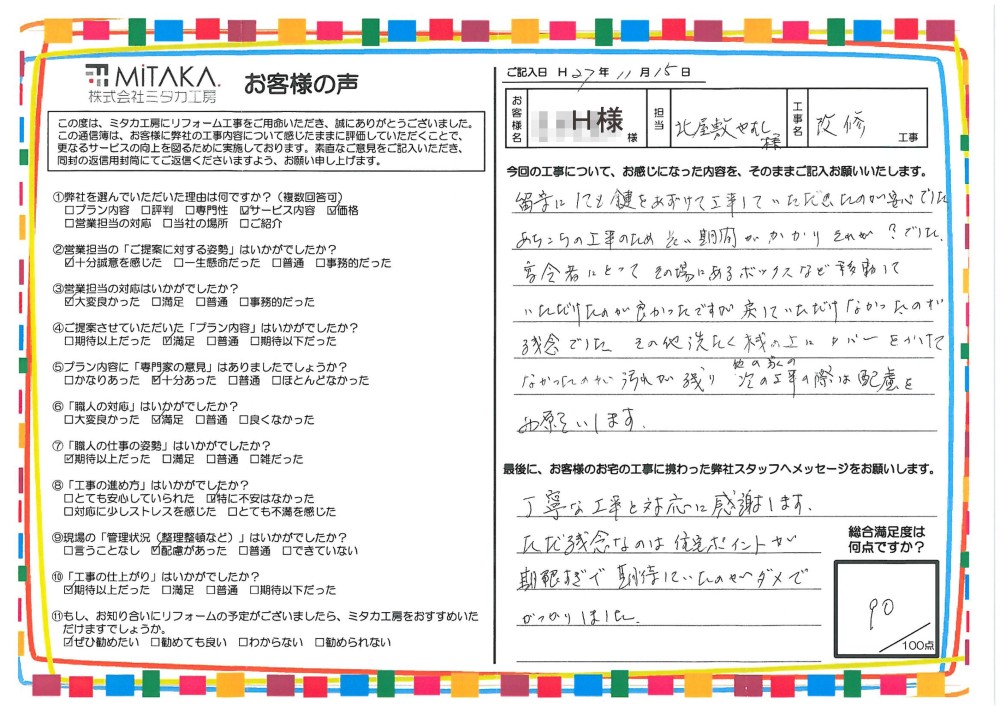 MiTAKA.
株式会社ミタカ工房
お客様の声
この度は、ミタカ工房にリフォーム工事をご用命いただき、誠にありがとうございました。
この通信簿は、お客様に弊社の工事内容について感じたままに評価していただくことで、
更なるサービスの向上を図るために実施しております。素直なご意見をご記入いただき、
同封の返信用封筒にてご返信くださいますよう、お願い申し上げます。
①弊社を選んでいただいた理由は何ですか？（複数回答可）
□プラン内容 □評判 □専門性 ☑サービス内容 ☑価格
□営業担当の対応 □当社の場所 □ご紹介
②営業担当の「ご提案に対する姿勢」はいかがでしたか？
☑十分誠意を感じた □一生懸命だった □普通 □事務的だった
③営業担当の対応はいかがでしたか？
☑大変良かった □満足 □普通 □事務的だった
④ご提案させていただいた「プラン内容」はいかがでしたか？
□期待以上だった ☑満足 □普通 □期待以下だった
⑤プラン内容に「専門家の意見」はありましたでしょうか？
□かなりあった ☑十分あった □普通 □ほとんどなかった
⑥「職人の対応」はいかがでしたか？
□大変良かった ☑満足 □普通 □良くなかった
⑦「職人の仕事の姿勢」はいかがでしたか？
☑期待以上だった □満足 □普通 □雑だった
⑧「工事の進め方」はいかがでしたか？
□とても安心していられた ☑特に不安はなかった
□対応に少しストレスを感じた □とても不満を感じた
⑨現場の「管理状況（整理整頓など）」はいかがでしたか？
□言うことなし ☑配慮があった □普通 □できていない
⑩「工事の仕上がり」はいかがでしたか？
☑期待以上だった □満足 □普通 □期待以下だった
⑪もし、お知り合いにリフォームの予定がございましたら、ミタカ工房をおすすめいた
だけますでしょうか。
☑ぜひ勧めたい □勧めても良い □わからない □勧められない
ご記入日 H 27 年 11 月 15 日
お客様名 H様 様 担当 北屋敷やすし様 工事名 改修 工事
今回の工事について、お感じになった内容を、そのままご記入お願いいたします。
留守にしても鍵をあずけて工事していただきたのが安心でした
あちこちの工事のため 長い期間がかかりそれが？でした。
高令者にとって その場にあるボックスなど移動して
いただけたのが良かったですが 戻していただけなかったのが
残念でした その他 洗たく機の上にカバーをかけて
なかったのが 汚れが残り 他の家の次の工事の際は配慮を
お願をいします。
最後に、お客様のお宅の工事に携わった弊社スタッフへメッセージをお願いします。
丁寧な工事と対応に感謝します。
ただ残念なのは 住宅ポイントが
期限すぎで 期待していたのがダメで
がっかりしました。
総合満足度は
何点ですか？
90
100点